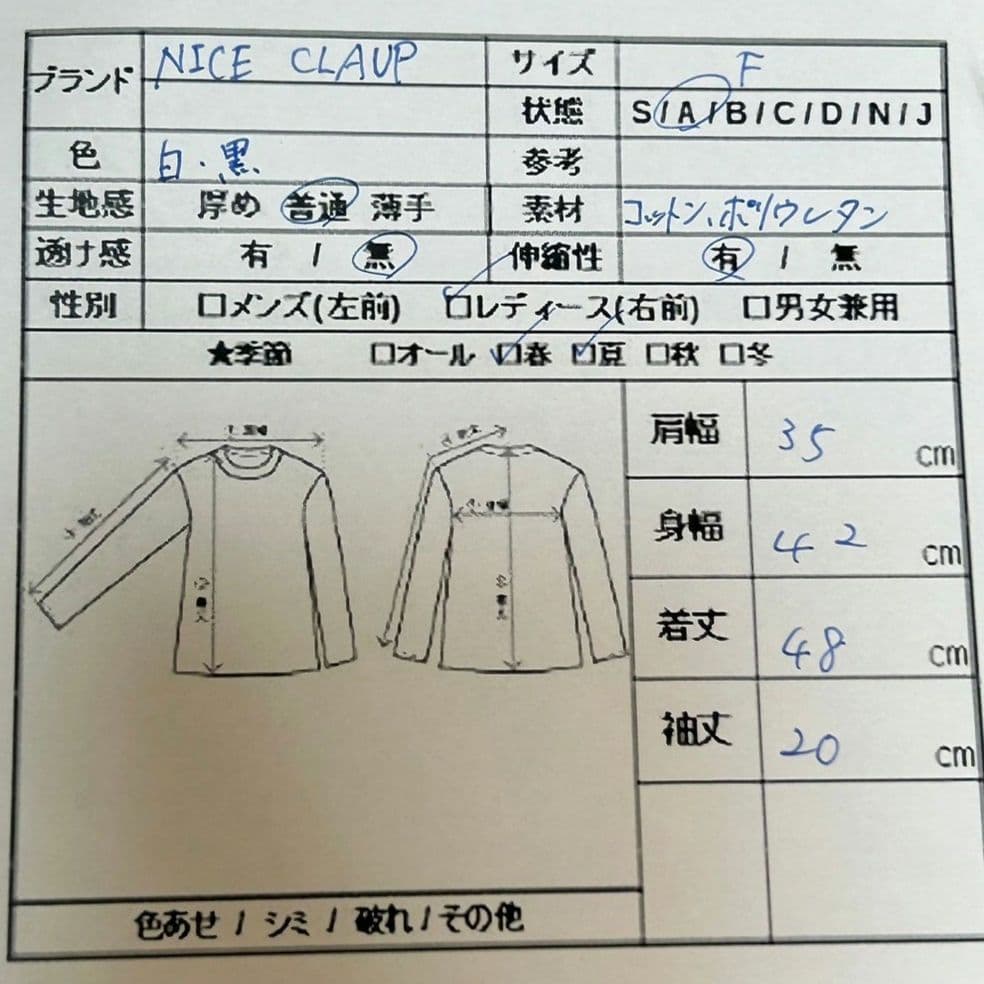 ブランド NICE CLAUP サイズ F
状態 S/A/B/C/D/N/J
色 白・黒 参考
生地感 厚め 普通 薄手 素材 コットン、ポリウレタン
透け感 有 / 無 伸縮性 有 / 無
性別 □メンズ(左前) □レディース(右前) □男女兼用
★季節 □オール □春 □夏 □秋 □冬
肩幅 35 cm
身幅 42 cm
着丈 48 cm
袖丈 20 cm
色あせ / シミ / 破れ / その他